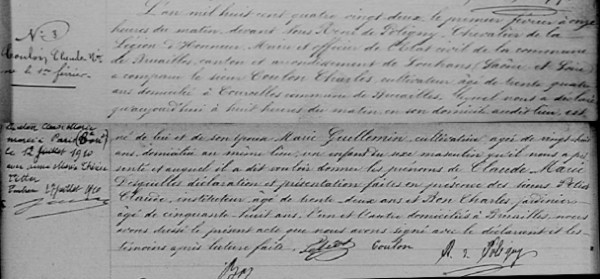 N° 3
Coulon Claude M.
né le 1er février.
L'an mil huit cent quatre vingt deux, le premier février à onze
heures du matin, devant Nous René de Poligny, Chevalier de la
Légion d'Honneur, Maire et officier de l'état civil de la commune
de Bruailles, canton et arrondissement de Louhans (Saône et Loire)
a comparu le sieur Coulon Charles, cultivateur âgé de trente quatre
ans domicilié à commune de Bruailles, lequel nous a déclaré
qu'aujourd'hui à huit heures du matin en son domicile audit lieu, est
Coulon Claude Marie
marié à Paris
le 12 juillet 1910
avec Marie
juillet 1910
né de lui et de son épouse Marie Guillemin, cultivatrice âgée de vingt
ans, domiciliée au même lieu, un enfant du sexe masculin qu'il nous a pré
senté et auquel il a dit vouloir donner les prénoms de Claude Marie
Desquelles déclaration et présentation faites en présence des sieurs Petit
instituteur âgé de trente deux ans et Bon Charles, jardinier
âgé de cinquante huit ans. L'un et l'autre domiciliés à Bruailles. nous
avons dressé le présent acte que nous avons signé avec le déclarant et les
témoins après lecture faite. Coulon R. de Poligny